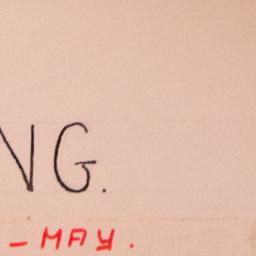 NG.
- MAY.